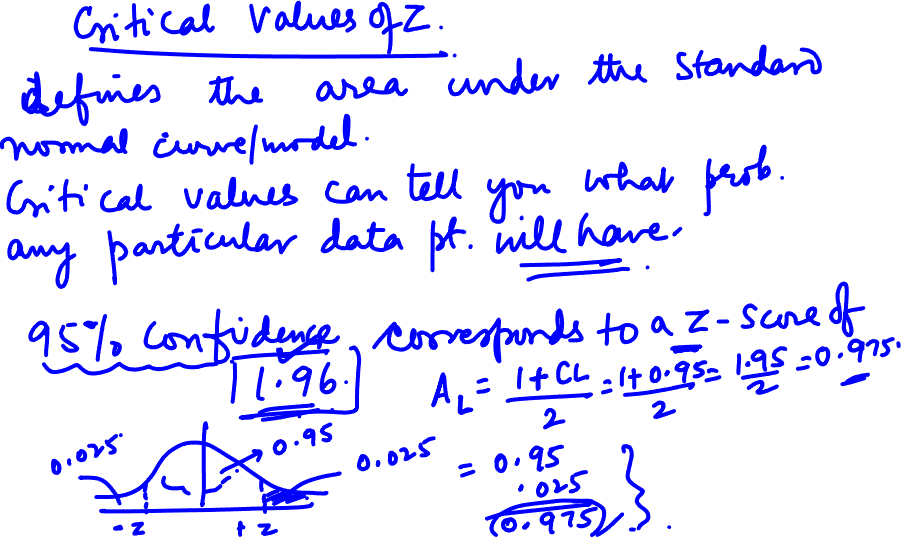 Critical values of Z.
defines the area under the standard
normal curve/model.
Critical values can tell you what prob.
any particular data pt. will have.
95% confidence corresponds to a Z-score of
1.96.
A_L = (1 + CL)/2 = (1 + 0.95)/2 = 1.95/2 = 0.975.
0.025 0.95 0.025
= 0.95
.025
(0.975)
-z +z